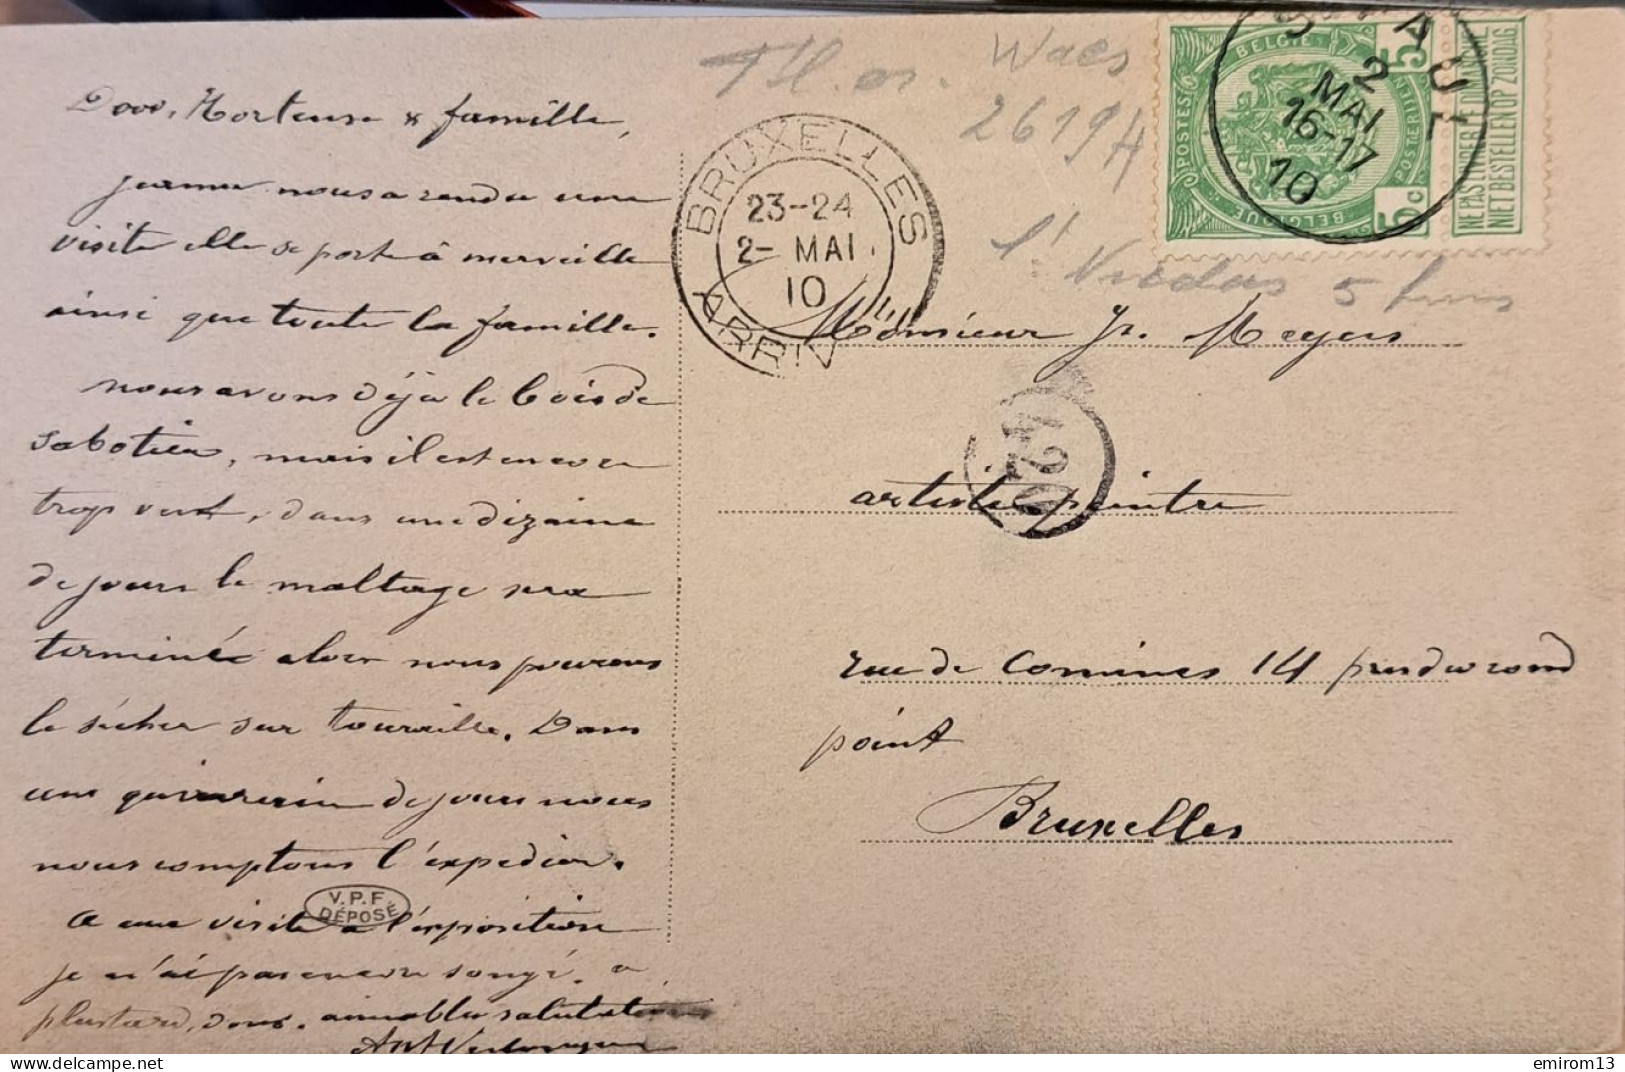 Hortense & famille,
nous a rendu une
visite elle se porte à merveille
ainsi que toute la famille.
nous avons déjà le bois de
sabotier, mais il est encore
trop vert, dans une dizaine
de jours le maltage sera
terminé alors nous pourrons
le sécher sur touraille. Dans
une quinzaine de jours nous
nous comptons l'expedier.
V.P.F
DÉPOSÉ
A une visite a l'exposition
je n'ai pas encore songé. a
plus tard, donc. aimables salutations
Th. os. Waes
2619A
5
BRUXELLES
23-24
2- MAI
10
ARRIV
BELGIË
5
POSTES
POSTERIJEN
5c
BELGIQUE
2
MAI
16-17
10
NE PAS LIVRER LE DIMANCHE
NIET BESTELLEN OP ZONDAG
Monsieur Jr. Meyers
artiste peintre
rue de Comines 14 pres du rond
point
Bruxelles
emirom13